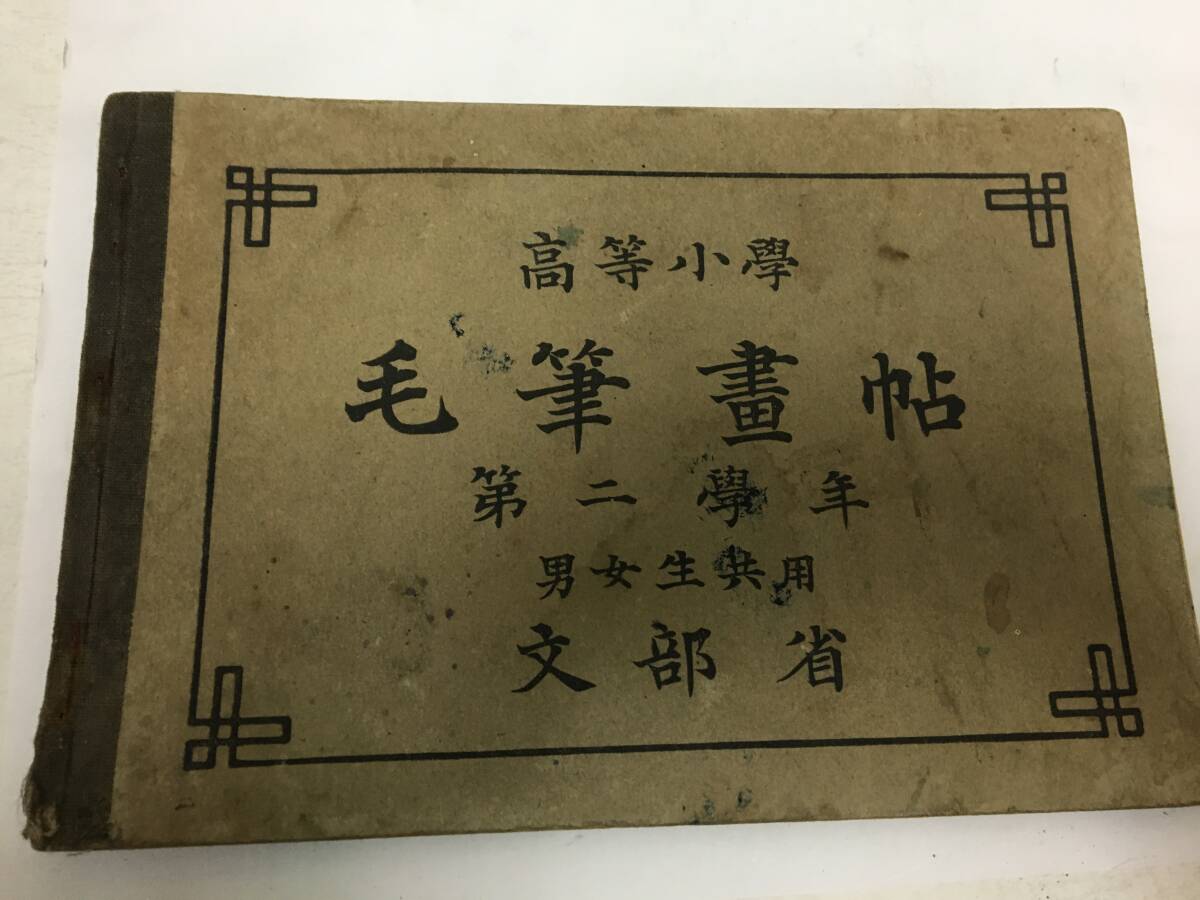 高等小學
毛筆畫帖
第二學年
男女生共用
文部省